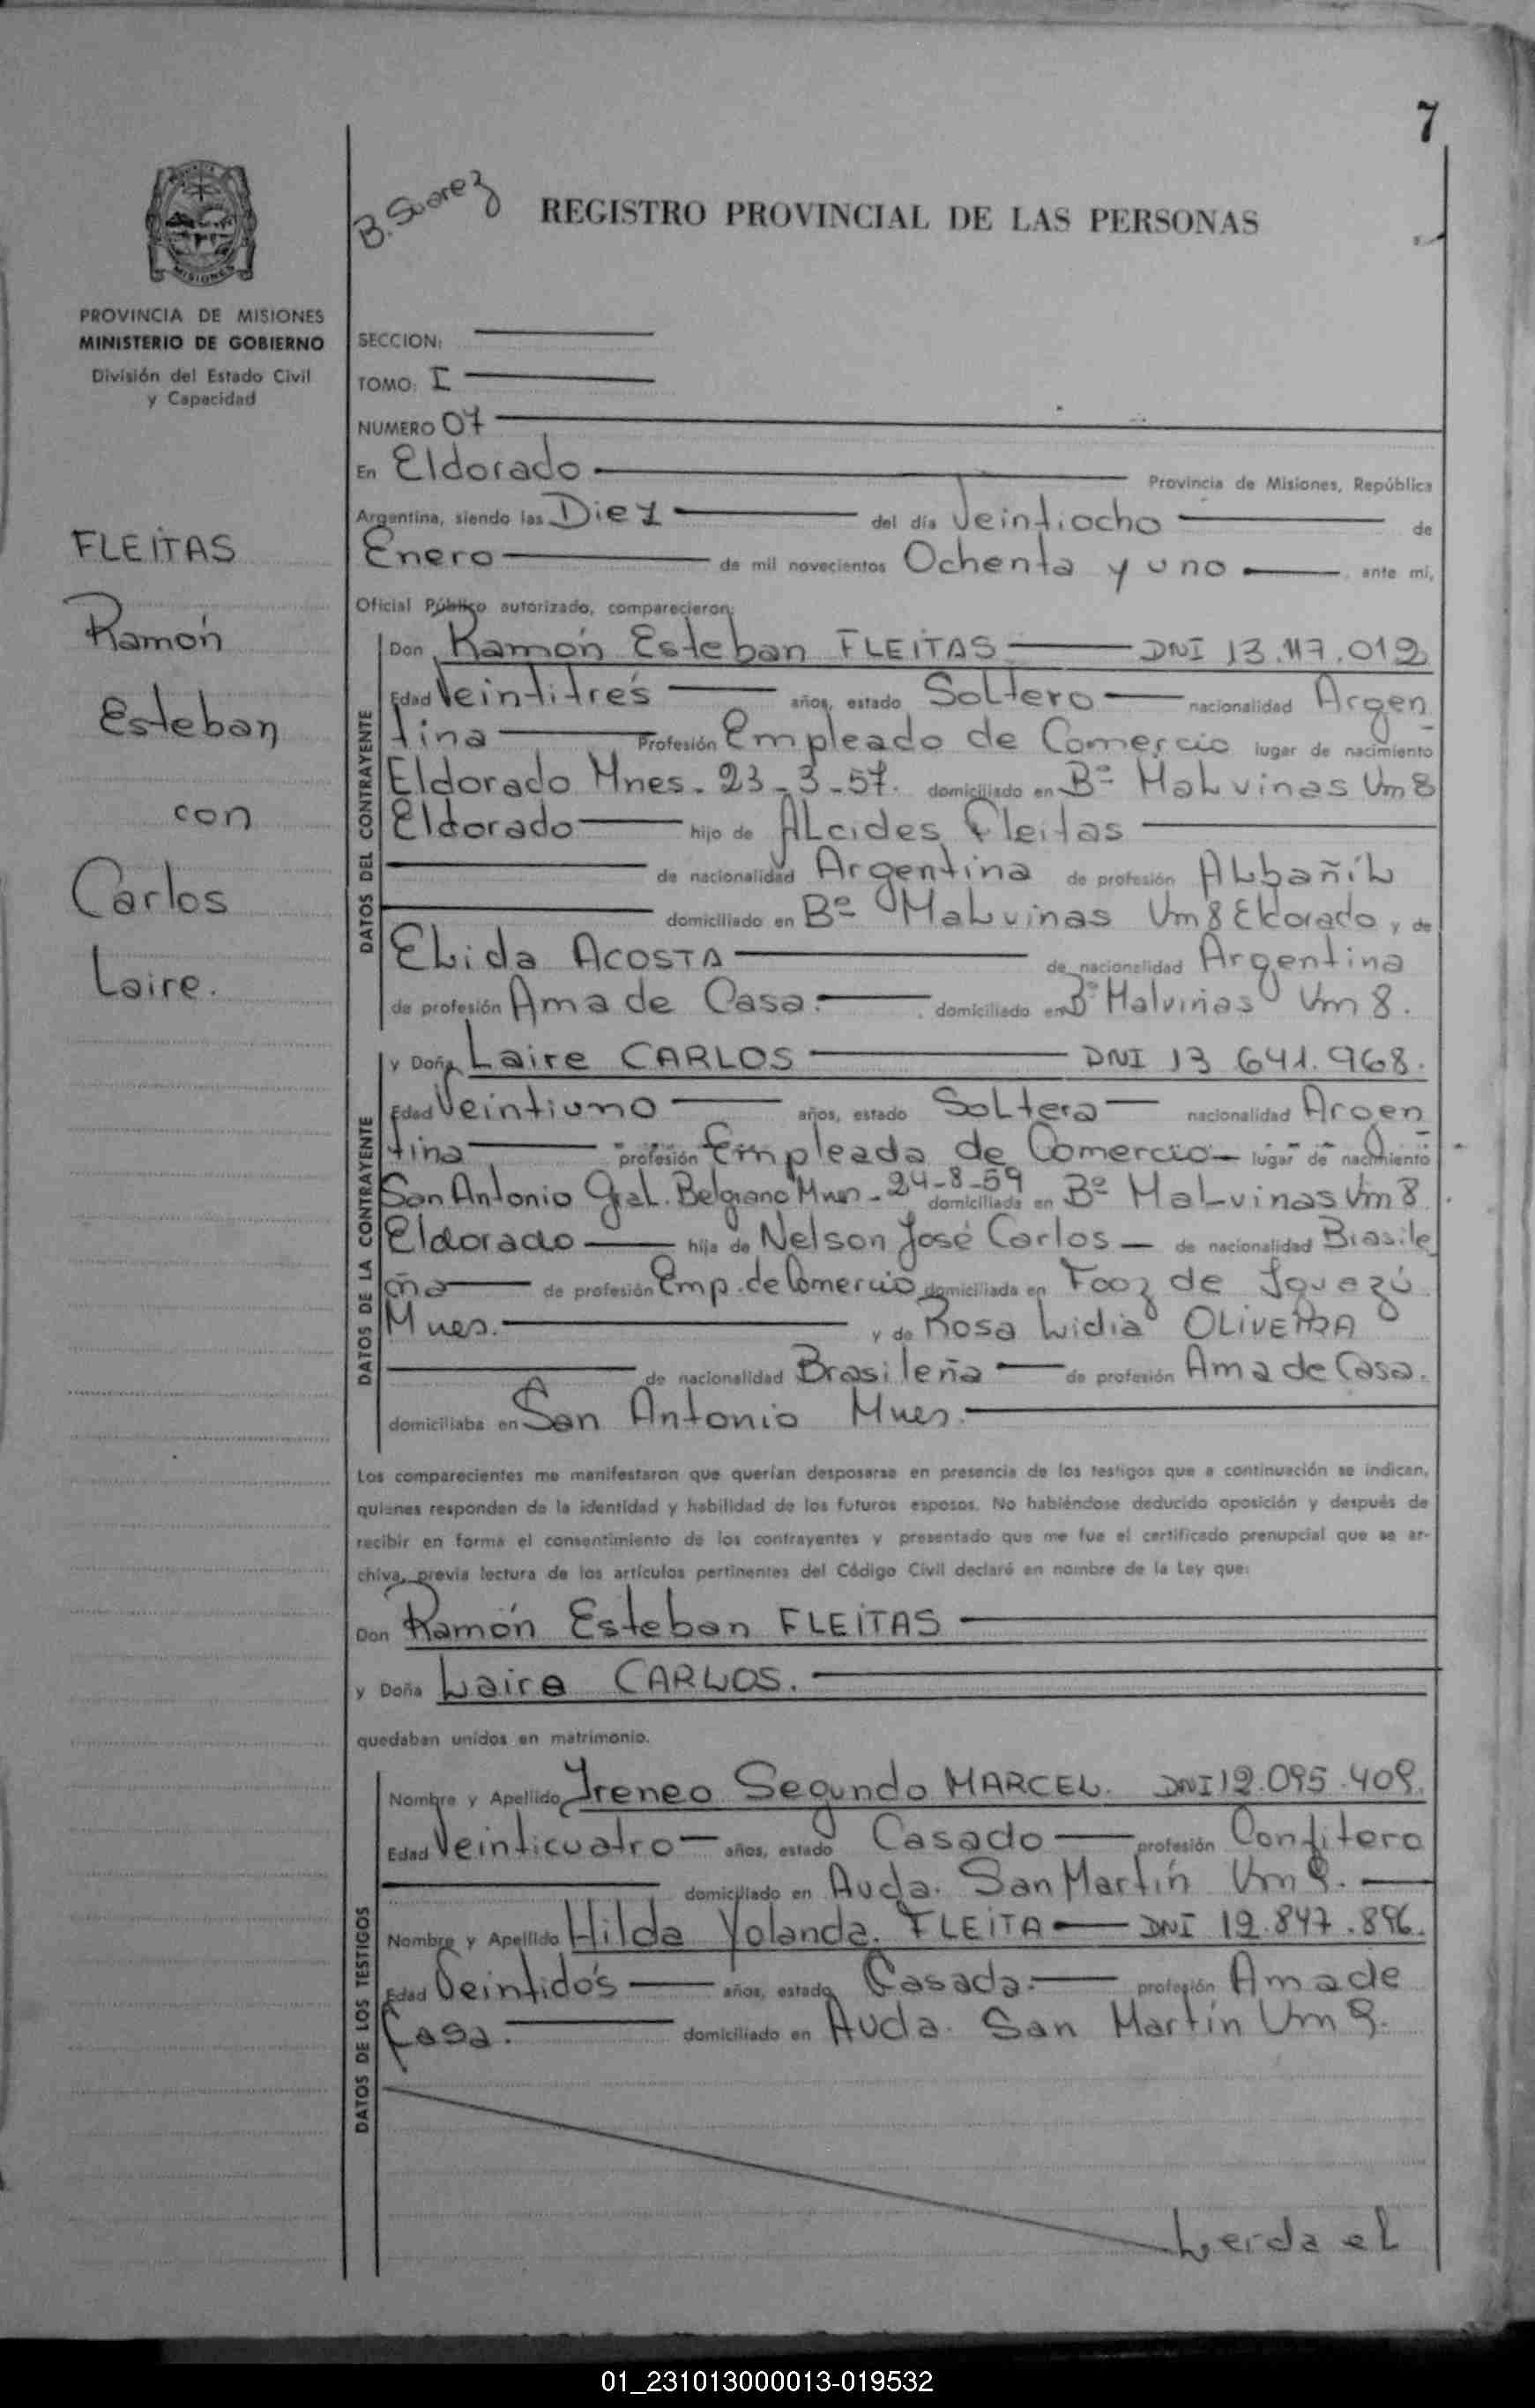 7
B. Suarez
REGISTRO PROVINCIAL DE LAS PERSONAS
MISIONES
PROVINCIA DE MISIONES
MINISTERIO DE GOBIERNO
División del Estado Civil
y Capacidad
SECCION:
TOMO: I
NUMERO 07
En Eldorado Provincia de Misiones, República
Argentina, siendo las Diez del día Veintiocho de
Enero de mil novecientos Ochenta y uno ante mí,
Oficial Público autorizado, comparecieron:
FLEITAS
Ramón
Esteban
con
Carlos
Laire.
DATOS DEL CONTRAYENTE
Don Ramón Esteban FLEITAS DNI 13.117.012
Edad Veintitrés años, estado Soltero nacionalidad Argen
tina Profesión Empleado de Comercio lugar de nacimiento
Eldorado Mnes. 23-3-57. domiciliado en Bº Malvinas Km 8
Eldorado hijo de Alcides Fleitas
de nacionalidad Argentina de profesión Albañil
domiciliado en Bº Malvinas Km 8 Eldorado y de
Elida ACOSTA de nacionalidad Argentina
de profesión Ama de Casa. domiciliado en Bº Malvinas Km 8.
DATOS DE LA CONTRAYENTE
y Doña Laire CARLOS DNI 13 641.968.
Edad Veintiuno años, estado Soltera nacionalidad Argen
tina profesión Empleada de Comercio lugar de nacimiento
San Antonio Gral. Belgrano Mnes - 24-8-59 domiciliada en Bº Malvinas Km 8
Eldorado hija de Nelson José Carlos de nacionalidad Brasile
ña de profesión Emp. de Comercio domiciliada en Fooz de Iguazú
Mnes. y de Rosa Lidia OLIVEIRA
de nacionalidad Brasileña de profesión Ama de Casa.
domiciliaba en San Antonio Mnes.
Los comparecientes me manifestaron que querían desposarse en presencia de los testigos que a continuación se indican,
quienes responden de la identidad y habilidad de los futuros esposos. No habiéndose deducido oposición y después de
recibir en forma el consentimiento de los contrayentes y presentado que me fue el certificado prenupcial que se ar-
chiva, previa lectura de los artículos pertinentes del Código Civil declaré en nombre de la Ley que:
Don Ramón Esteban FLEITAS
y Doña Laire CARLOS.
quedaban unidos en matrimonio.
DATOS DE LOS TESTIGOS
Nombre y Apellido Ireneo Segundo MARCEL. DNI 12.095.409.
Edad Veinticuatro años, estado Casado profesión Confitero
domiciliado en Avda. San Martín Km 9.
Nombre y Apellido Hilda Yolanda. FLEITA DNI 12.847.896.
Edad Veintidós años, estado Casada. profesión Ama de
Casa. domiciliado en Avda. San Martín Km 9.
Leída el
01_231013000013-019532